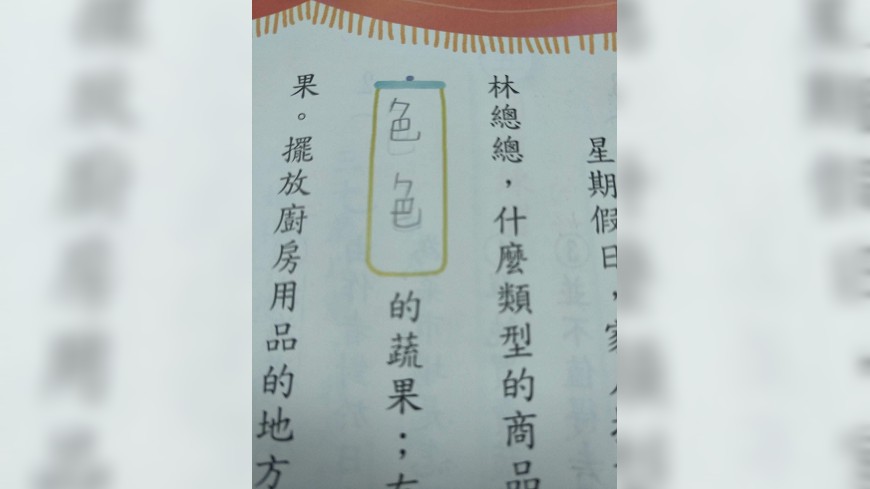 星期假日，家
林總總，什麼類型的商品
色色的蔬果；
果。擺放廚房用品的地方